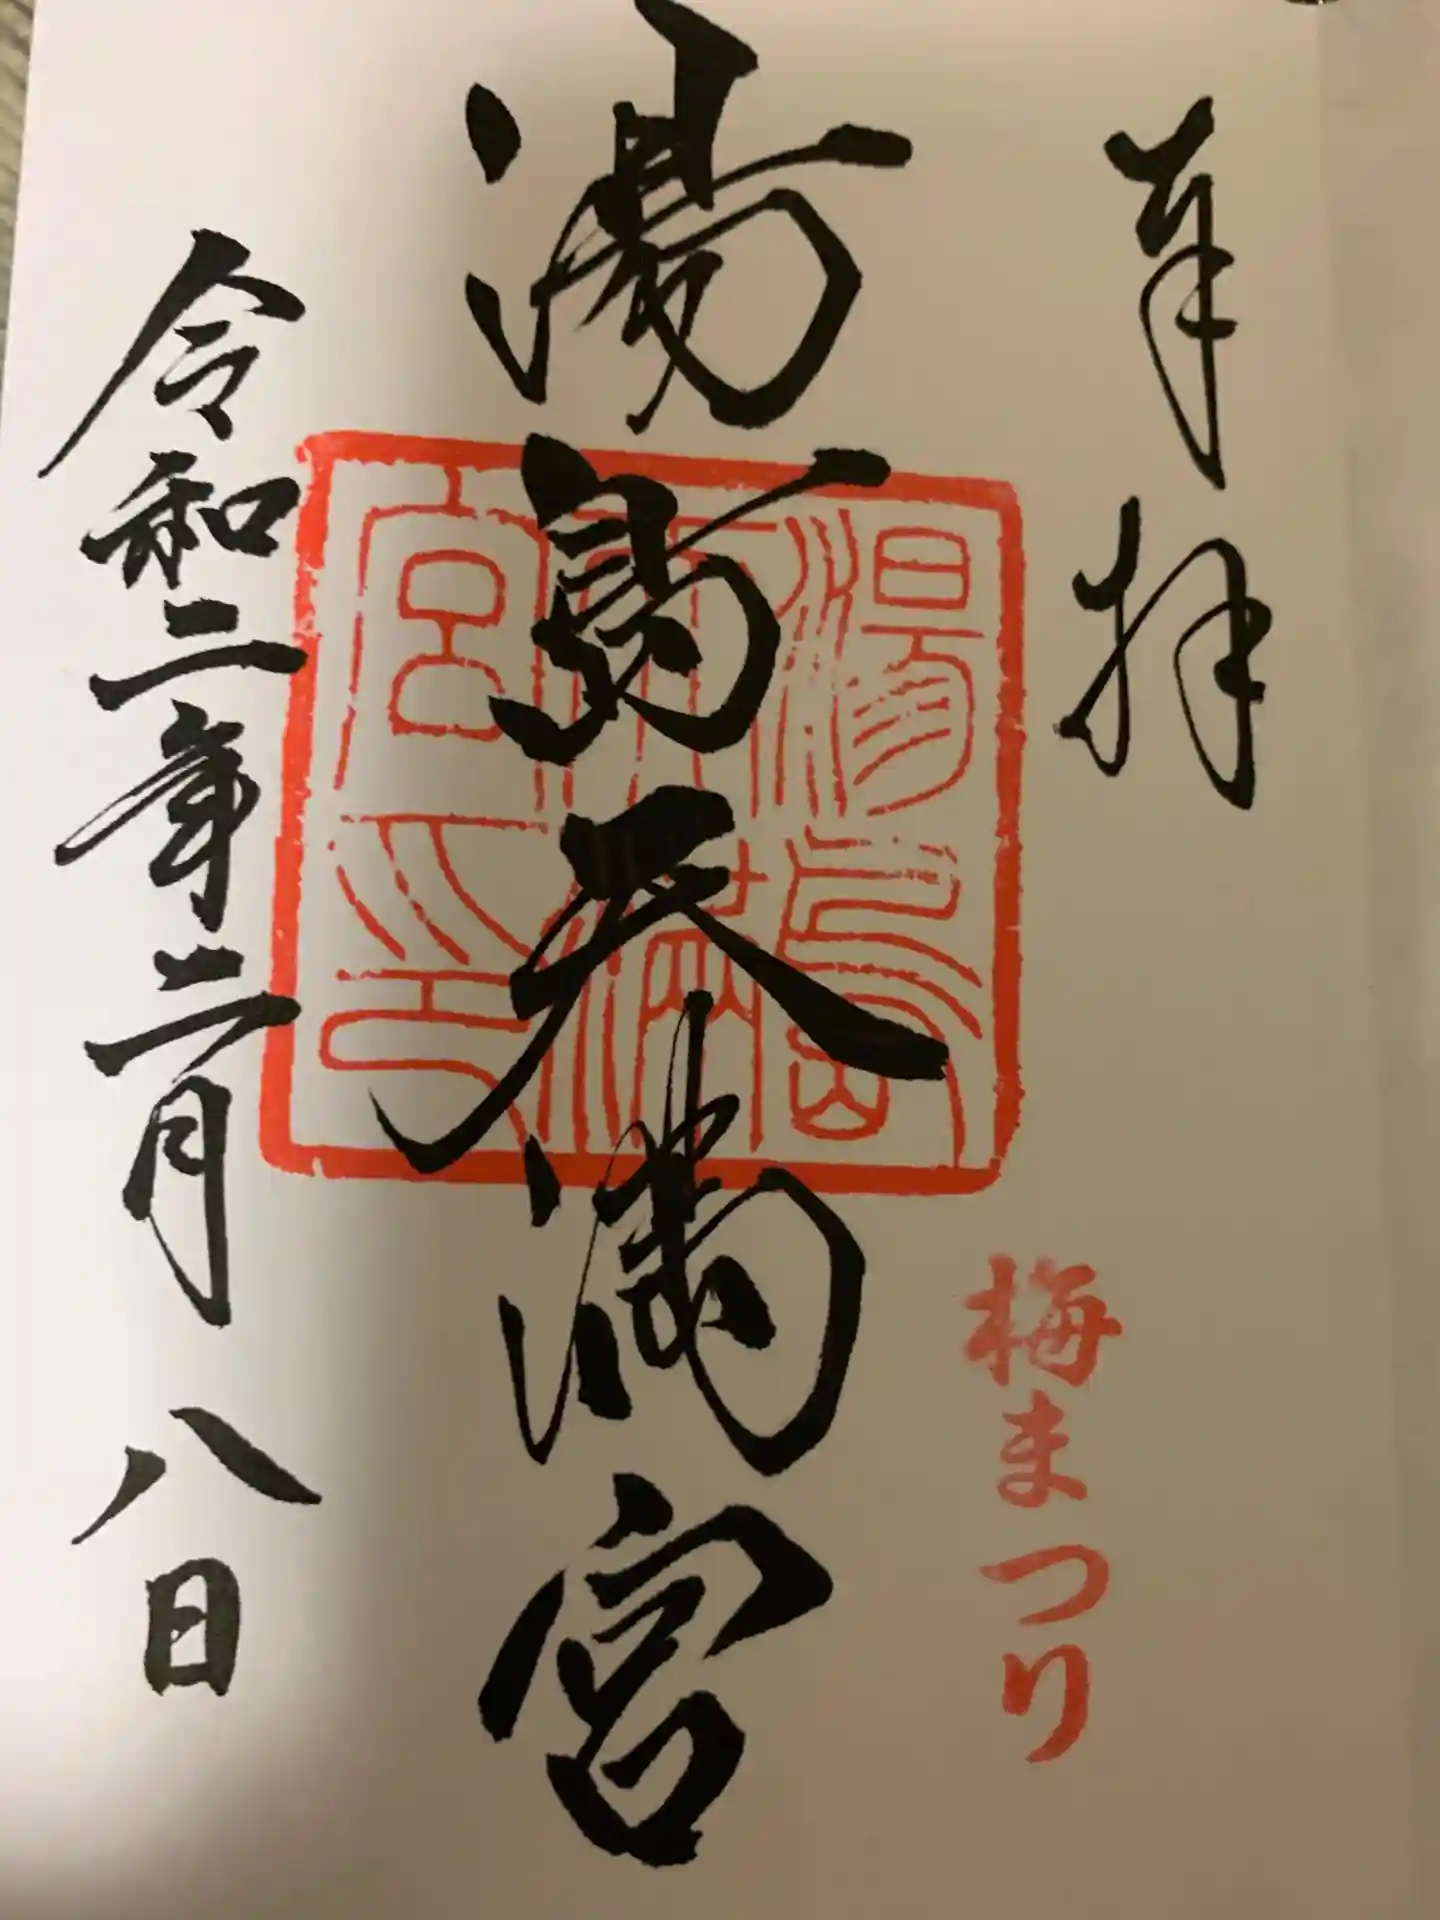 奉拝
梅まつり
湯島天満宮
湯島
天満
宮印
令和二年二月八日